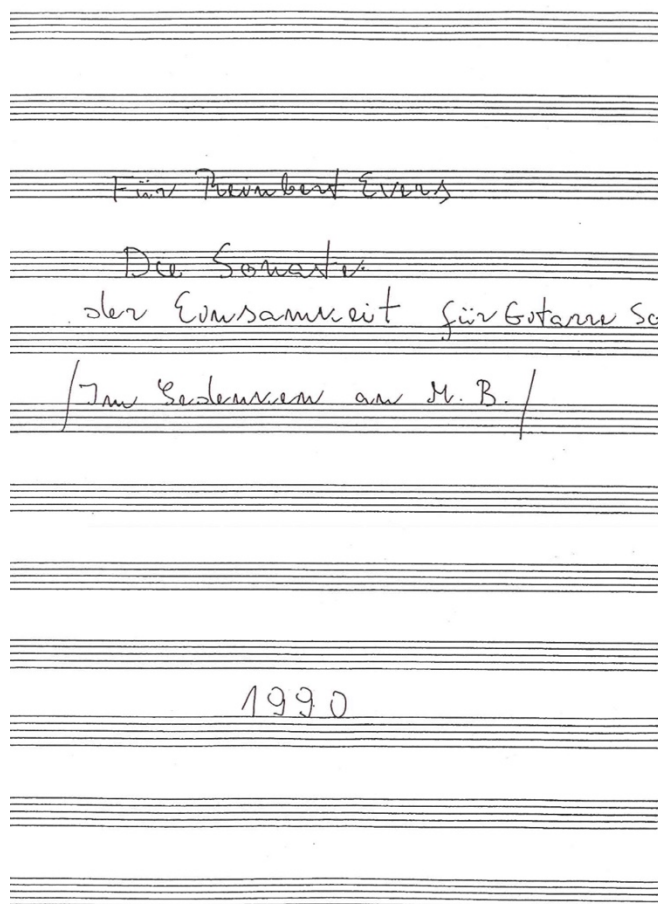 Für Reinbert Evers
Die Sonate
der Einsamkeit für Gitarre So
/Im Gedenken an M. B./
1990